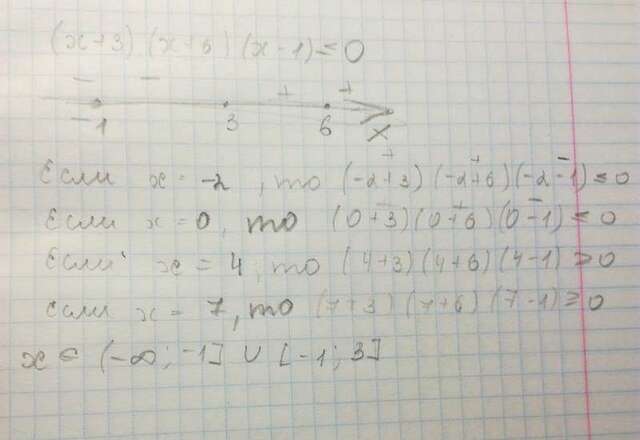 (x+3) (x+6) (x-1) ≤ 0
- - + +
-1 3 6 x
Если x = -2, то (-2+3) (-2+6) (-2-1) ≤ 0
Если x = 0, то (0+3) (0+6) (0-1) ≤ 0
Если x = 4, то (4+3) (4+6) (4-1) ≥ 0
Если x = 7, то (7+3) (7+6) (7-1) ≥ 0
x ∈ (-∞; -1] ∪ [-1; 3]